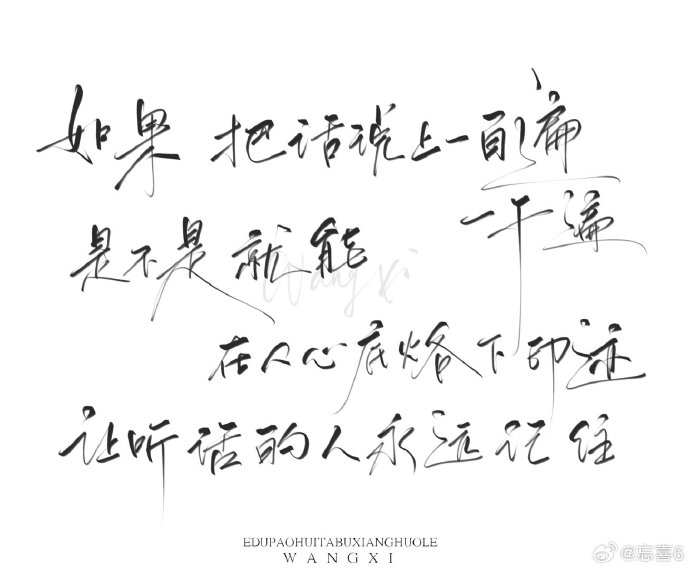 如果 把话说上一百遍
一千遍
是不是就能
Wangxi
在人心底烙下印迹
让听话的人永远记住
EDUPAOHUITABUXIANGHUOLE
WANGXI
@忘喜6